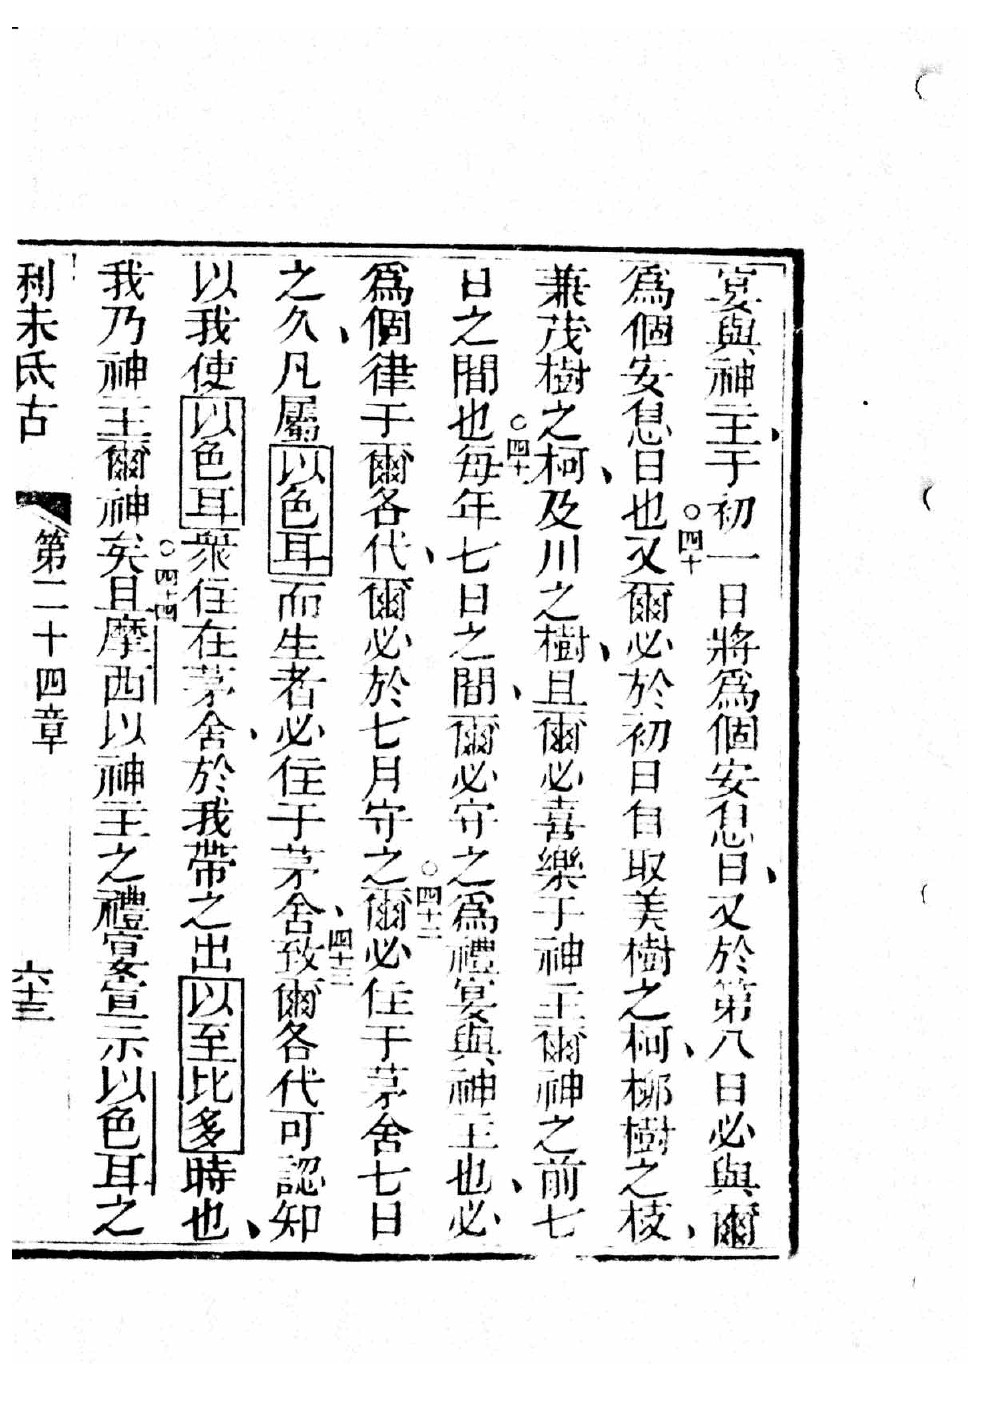 宴與神主于初一日將爲個安息日又於第八日必與爾
爲個安息日也○四十又爾必於初日自取美樹之柯梛樹之枝
兼茂樹之柯及川之樹且爾必喜樂于神主爾神之前七
日之間也○四十一每年七日之間爾必守之爲禮宴與神主也必
爲個律于爾各代爾必於七月守之○四十二爾必住于茅舍七日
之久凡屬以色耳而生者必住于茅舍四十三致爾各代可認知
以我使以色耳衆住在茅舍於我帶之出以至比多時也
我乃神主爾神矣○四十四且摩西以神主之禮宴宣示以色耳之
利未氐古 第二十四章 六十三